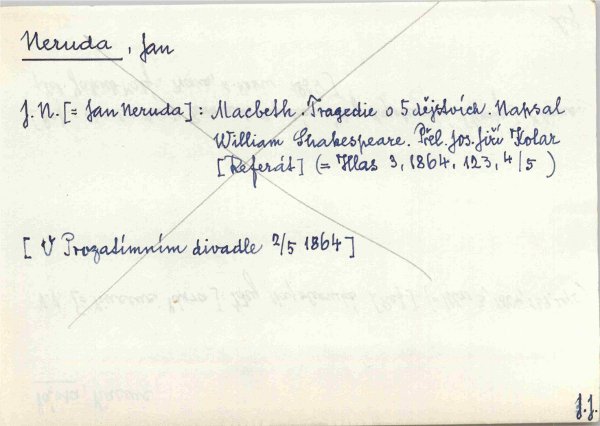 Neruda, Jan
J. N. [= Jan Neruda] : Macbeth. Tragedie o 5 dějstvích. Napsal
William Shakespeare. Přel. Jos. Jiří Kolar
[Referát] (= Hlas 3, 1864, 123, 4/5 )
[ V Prozatímním divadle 2/5 1864 ]
J. J.